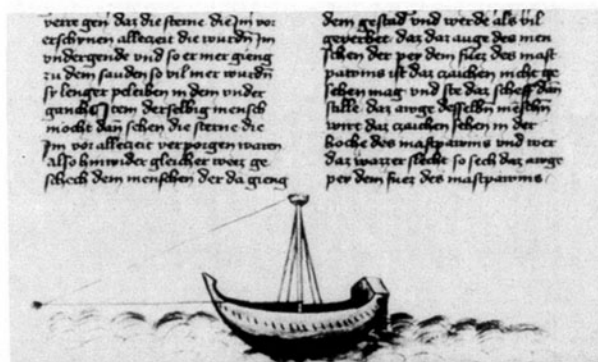 verre gen daz die sterne die Jm vor
erschynen allezeit die wurdn Jm
vndergende vnd so er mer gieng
zu dem sauden so vil mer wurdn
sy lenger peleiben in dem vnder
ganck Jtem derselbig mensch
mocht dan sehen die sterne die
Jm vor allezeit verporgen waren
also hinwider gleicher weis ge
schech dem menschen der da gieng
dem gestad vnd werde als vil
daz daz auge des men
schen der per dem fuez des mast
pawms ist daz czaichen nicht ge
sehen mag vnd ste daz scheff dan
stille daz awge desselbn menschn
wirt daz czaichen sehen in der
hoche des mastpawms vnd wer
daz wazzer slecht so sech daz awge
per dem fuez des mastpawms